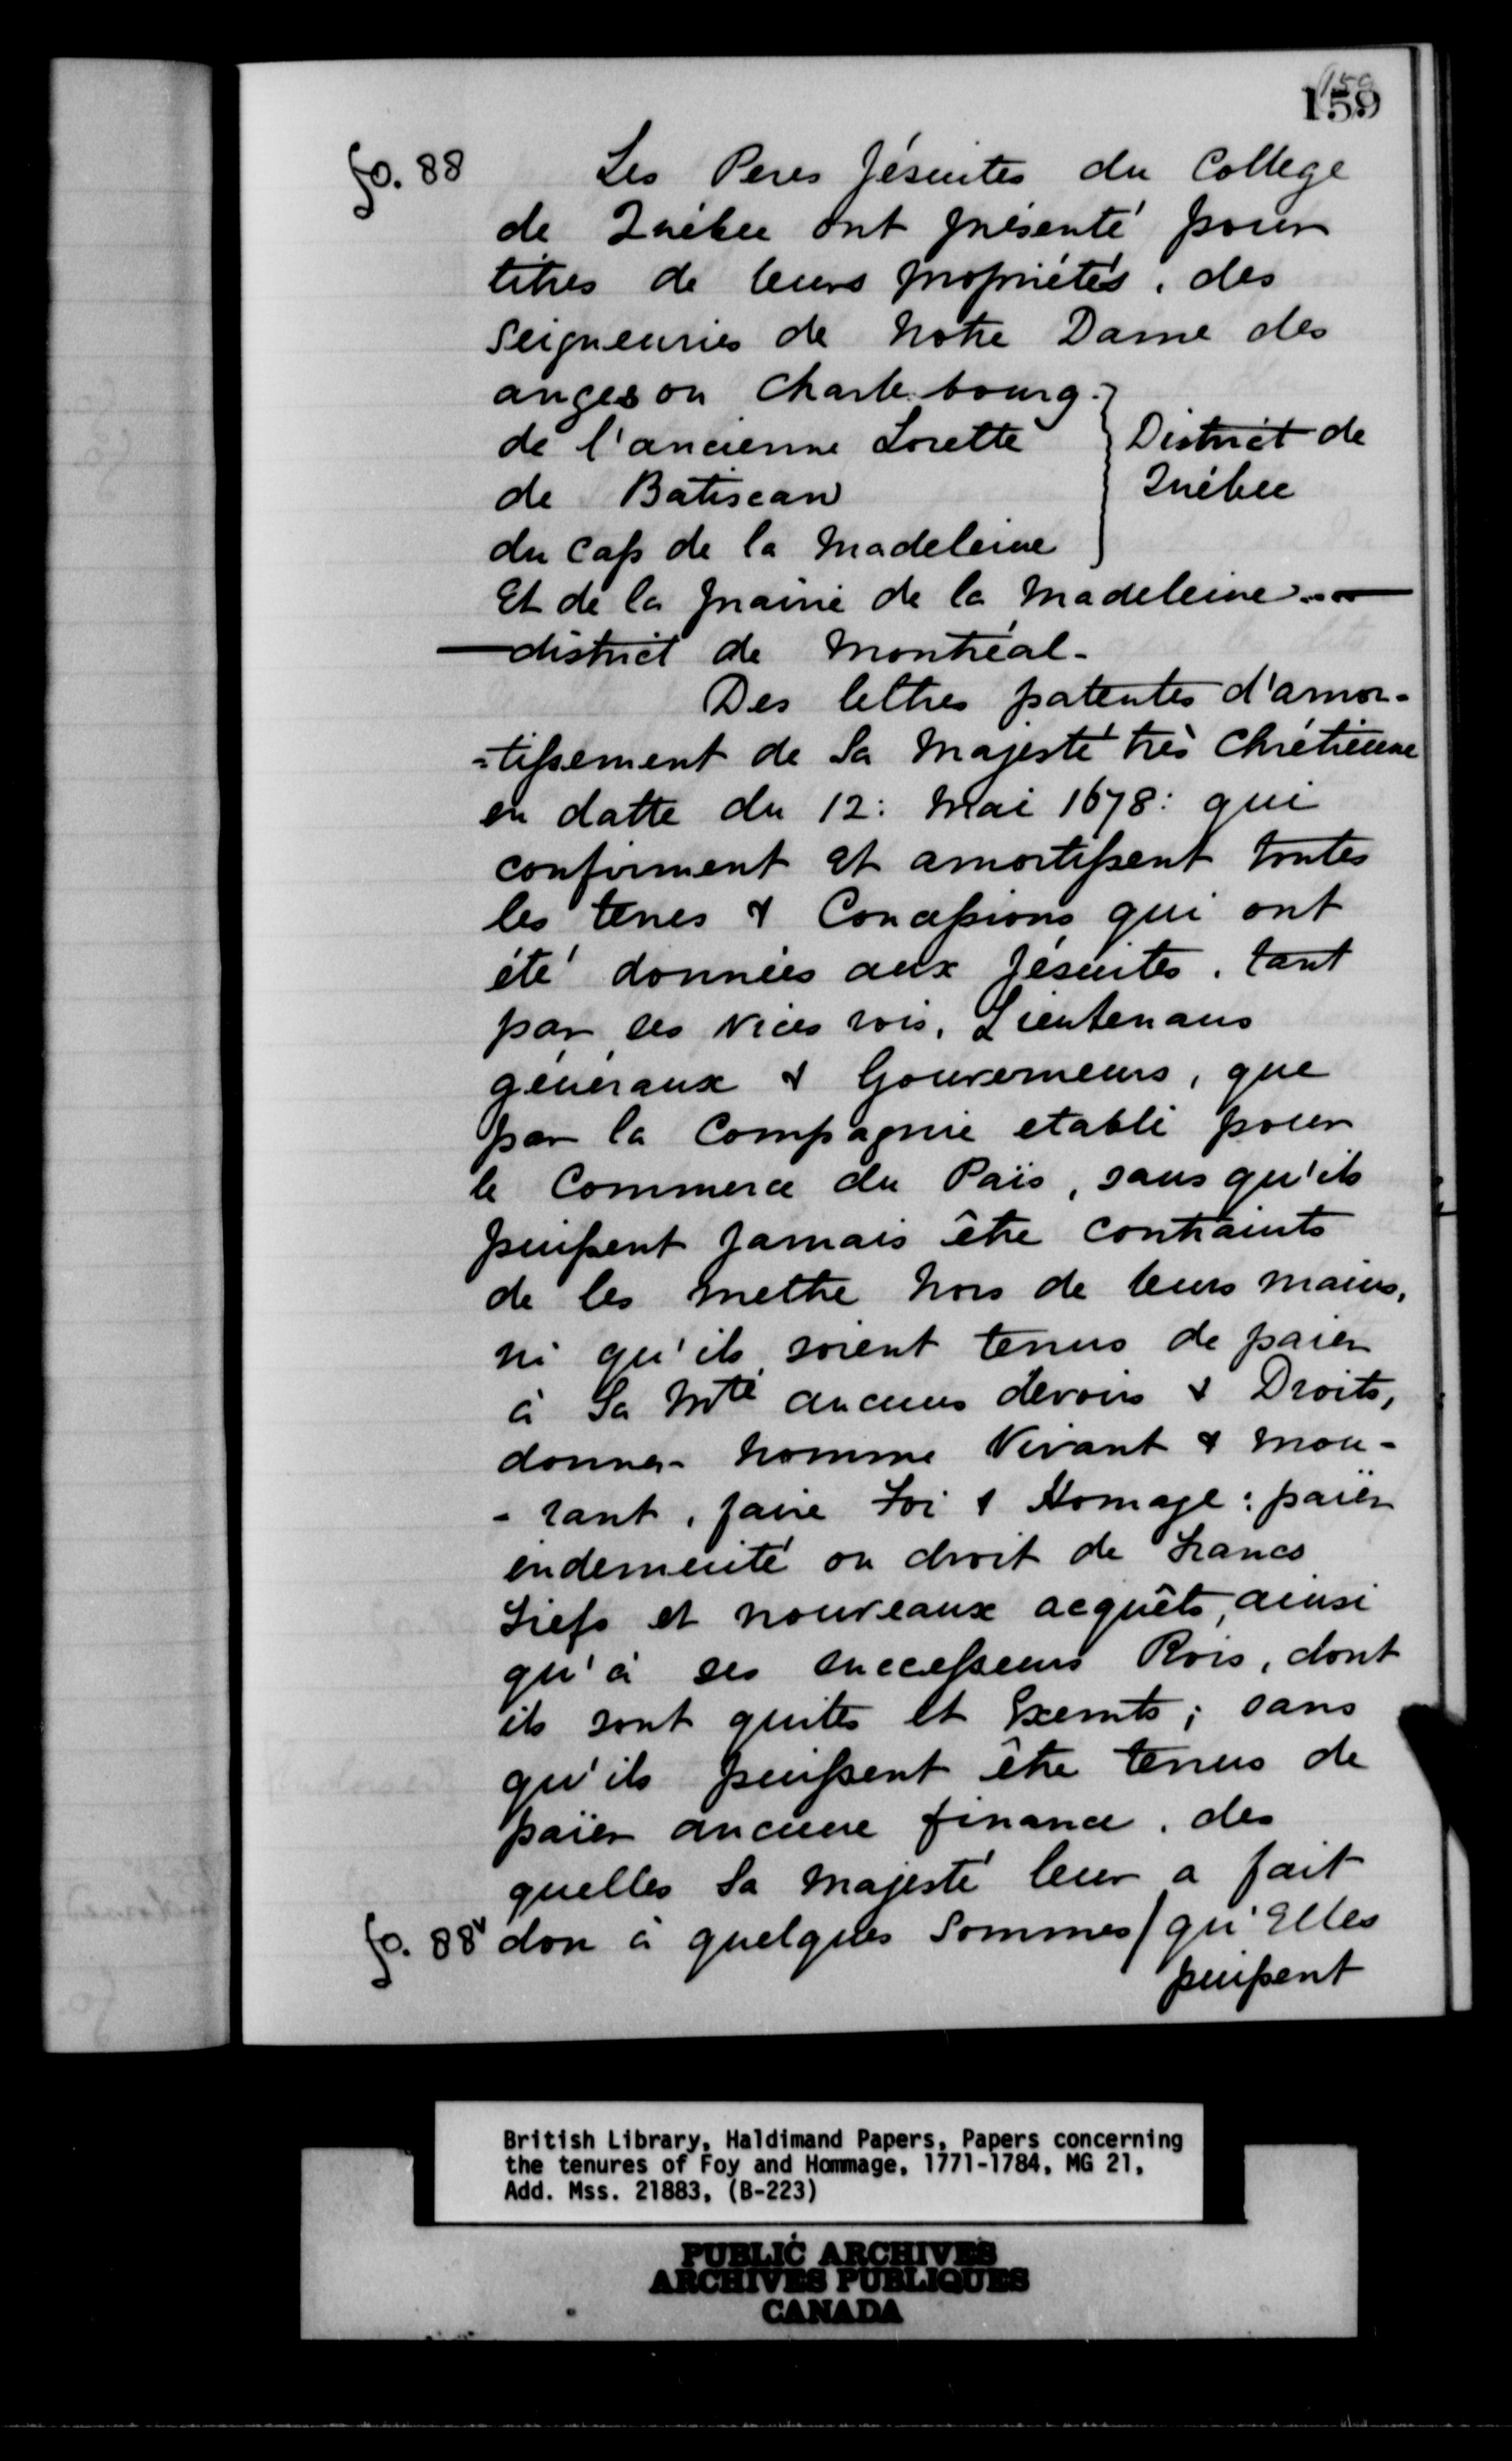 159
159
fo. 88 Les Peres Jésuites du College
de Québec ont présenté pour
titres de leurs propriétés, des
Seigneuries de Notre Dame des
anges ou Charlebourg.
de l'ancienne Lorette } District de
de Batiscan Québec
du Cap de la Madeleine
Et de la prairie de la Madeleine...—
—district de Montréal.
Des lettres patentes d'amor-
=tissement de Sa Majesté très Chrétienne
en datte du 12: Mai 1678: qui
confirment et amortissent toutes
les terres & Concessions qui ont
été données aux Jésuites, tant
par les Vices rois, Lieutenans
généraux & Gouverneurs, que
par la Compagnie etabli pour
le Commerce du Païs, sans qu'ils
puissent jamais être contraints
de les mettre hors de leurs mains,
ni qu'ils soient tenus de païer
à Sa Mté aucuns devoirs & Droits,
donner homme Vivant & mou-
-rant, faire Foi & Homage: païer
indemnité ou droit de Francs
Fiefs et nouveaux acquêts, ainsi
qu'à ses successeurs Rois, dont
ils sont quites et Exemts; sans
qu'ils puissent être tenus de
païer aucune finance, des
quelles Sa Majesté leur a fait
fo. 88v don à quelques Sommes / qu'Elles
puissent
British Library, Haldimand Papers, Papers concerning
the tenures of Foy and Hommage, 1771-1784, MG 21,
Add. Mss. 21883, (B-223)
PUBLIC ARCHIVES
ARCHIVES PUBLIQUES
CANADA